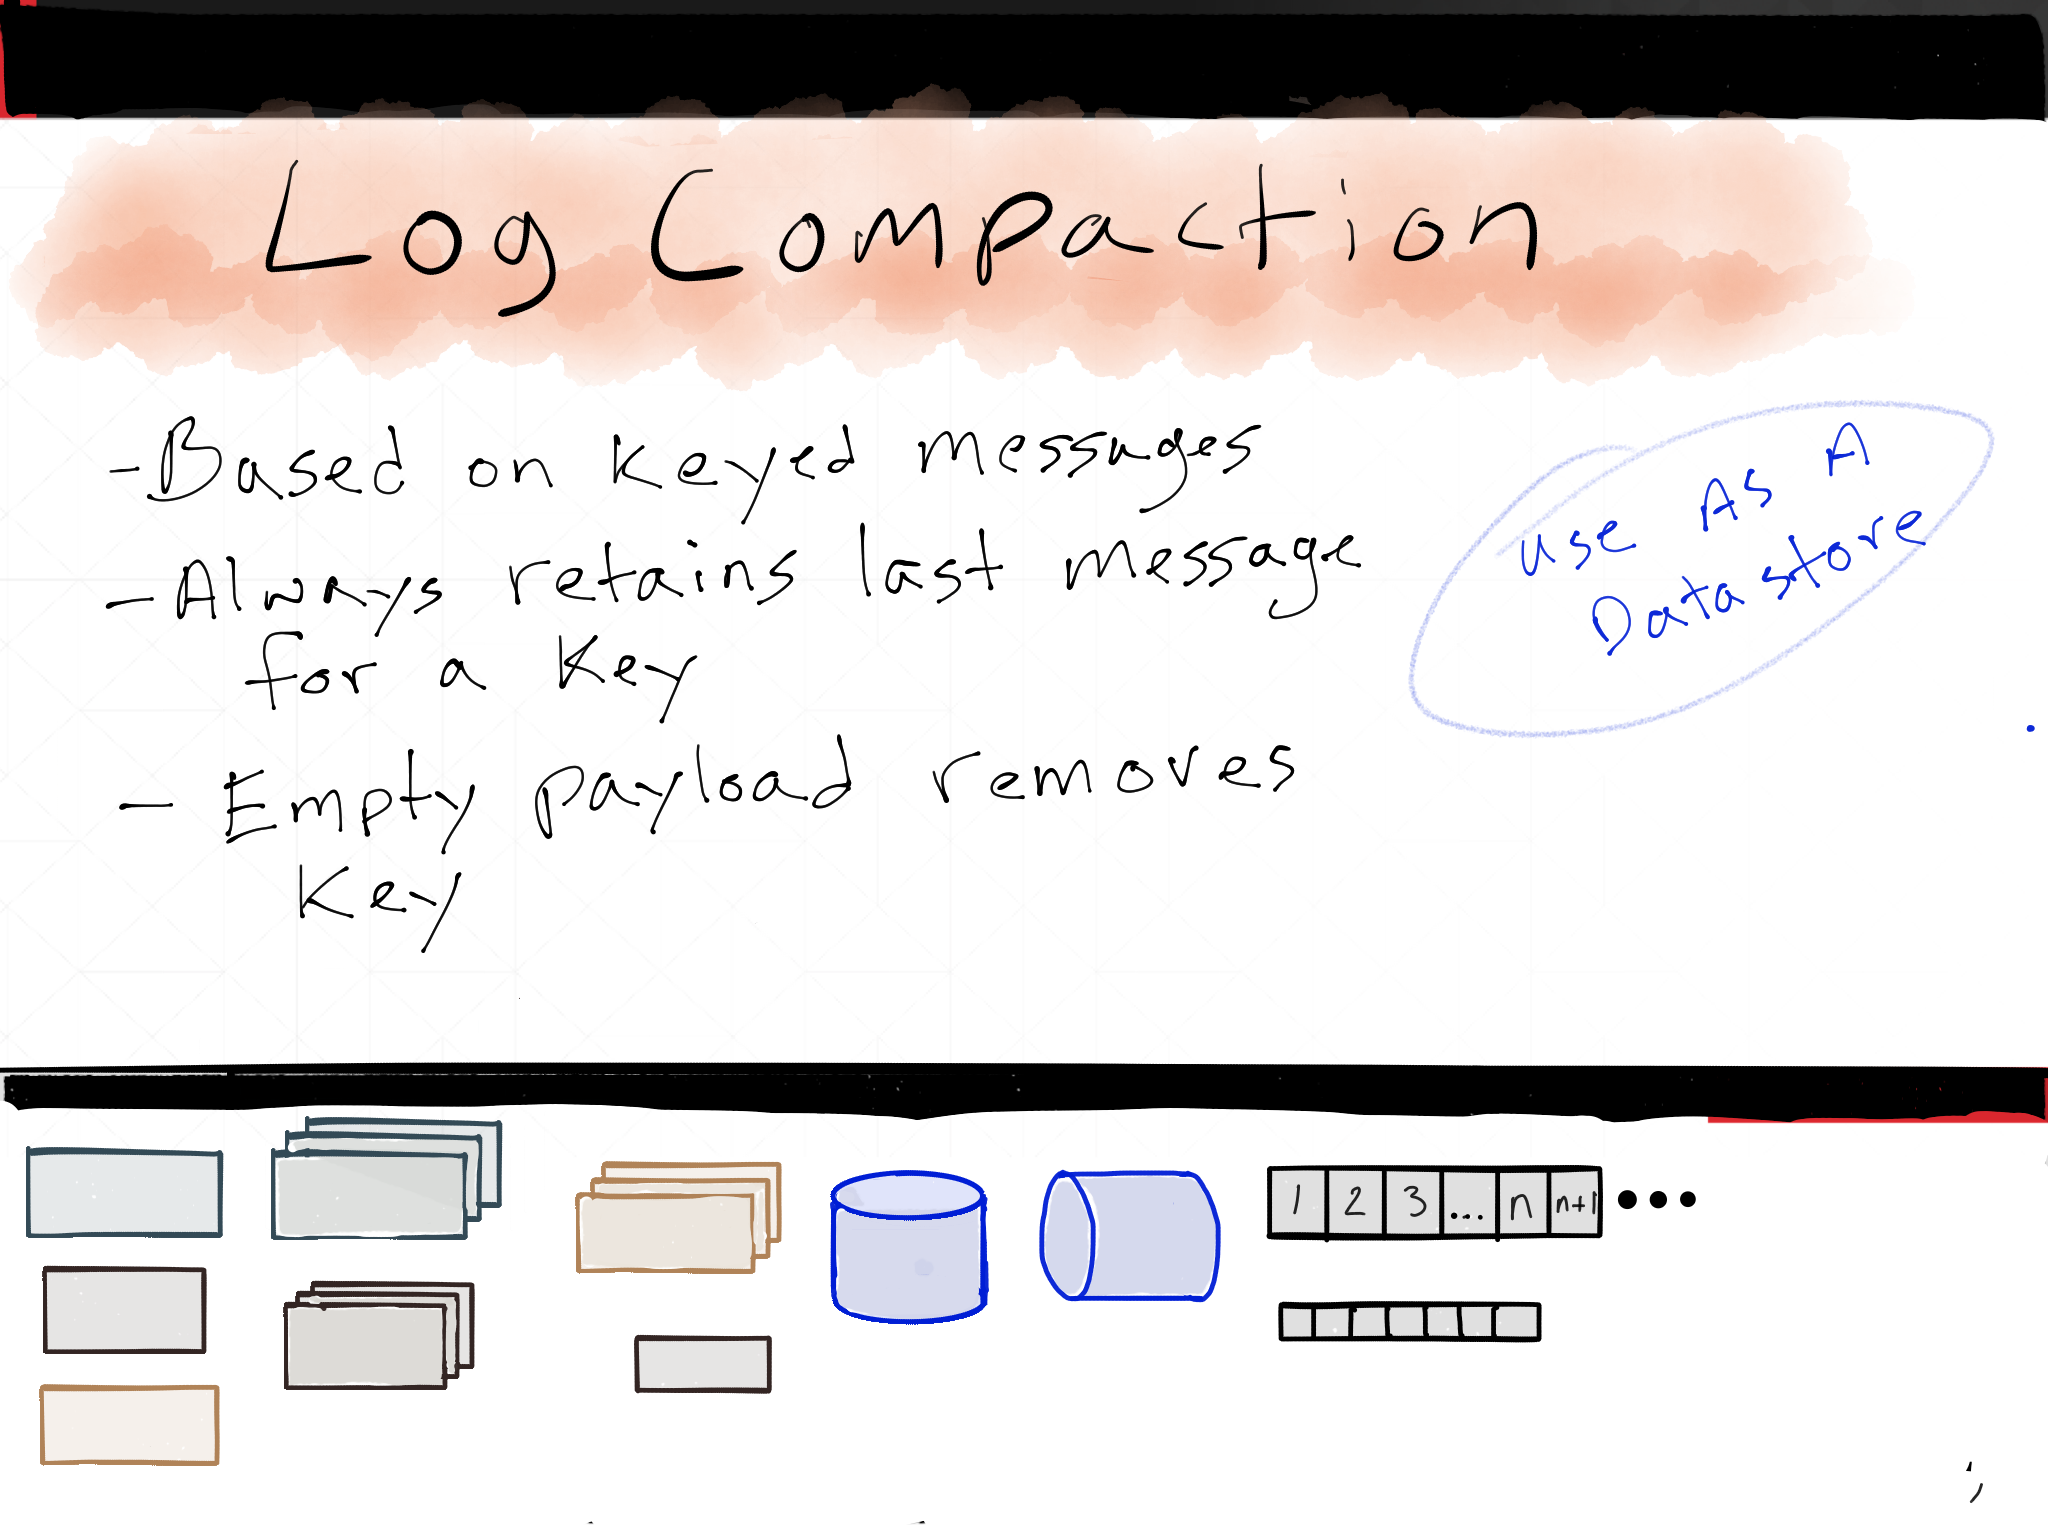 Log Compaction
- Based on keyed messages
- Always retains last message
for a key
- Empty payload removes
key
use As A
Data store
1 2 3 ... n n+1 •••